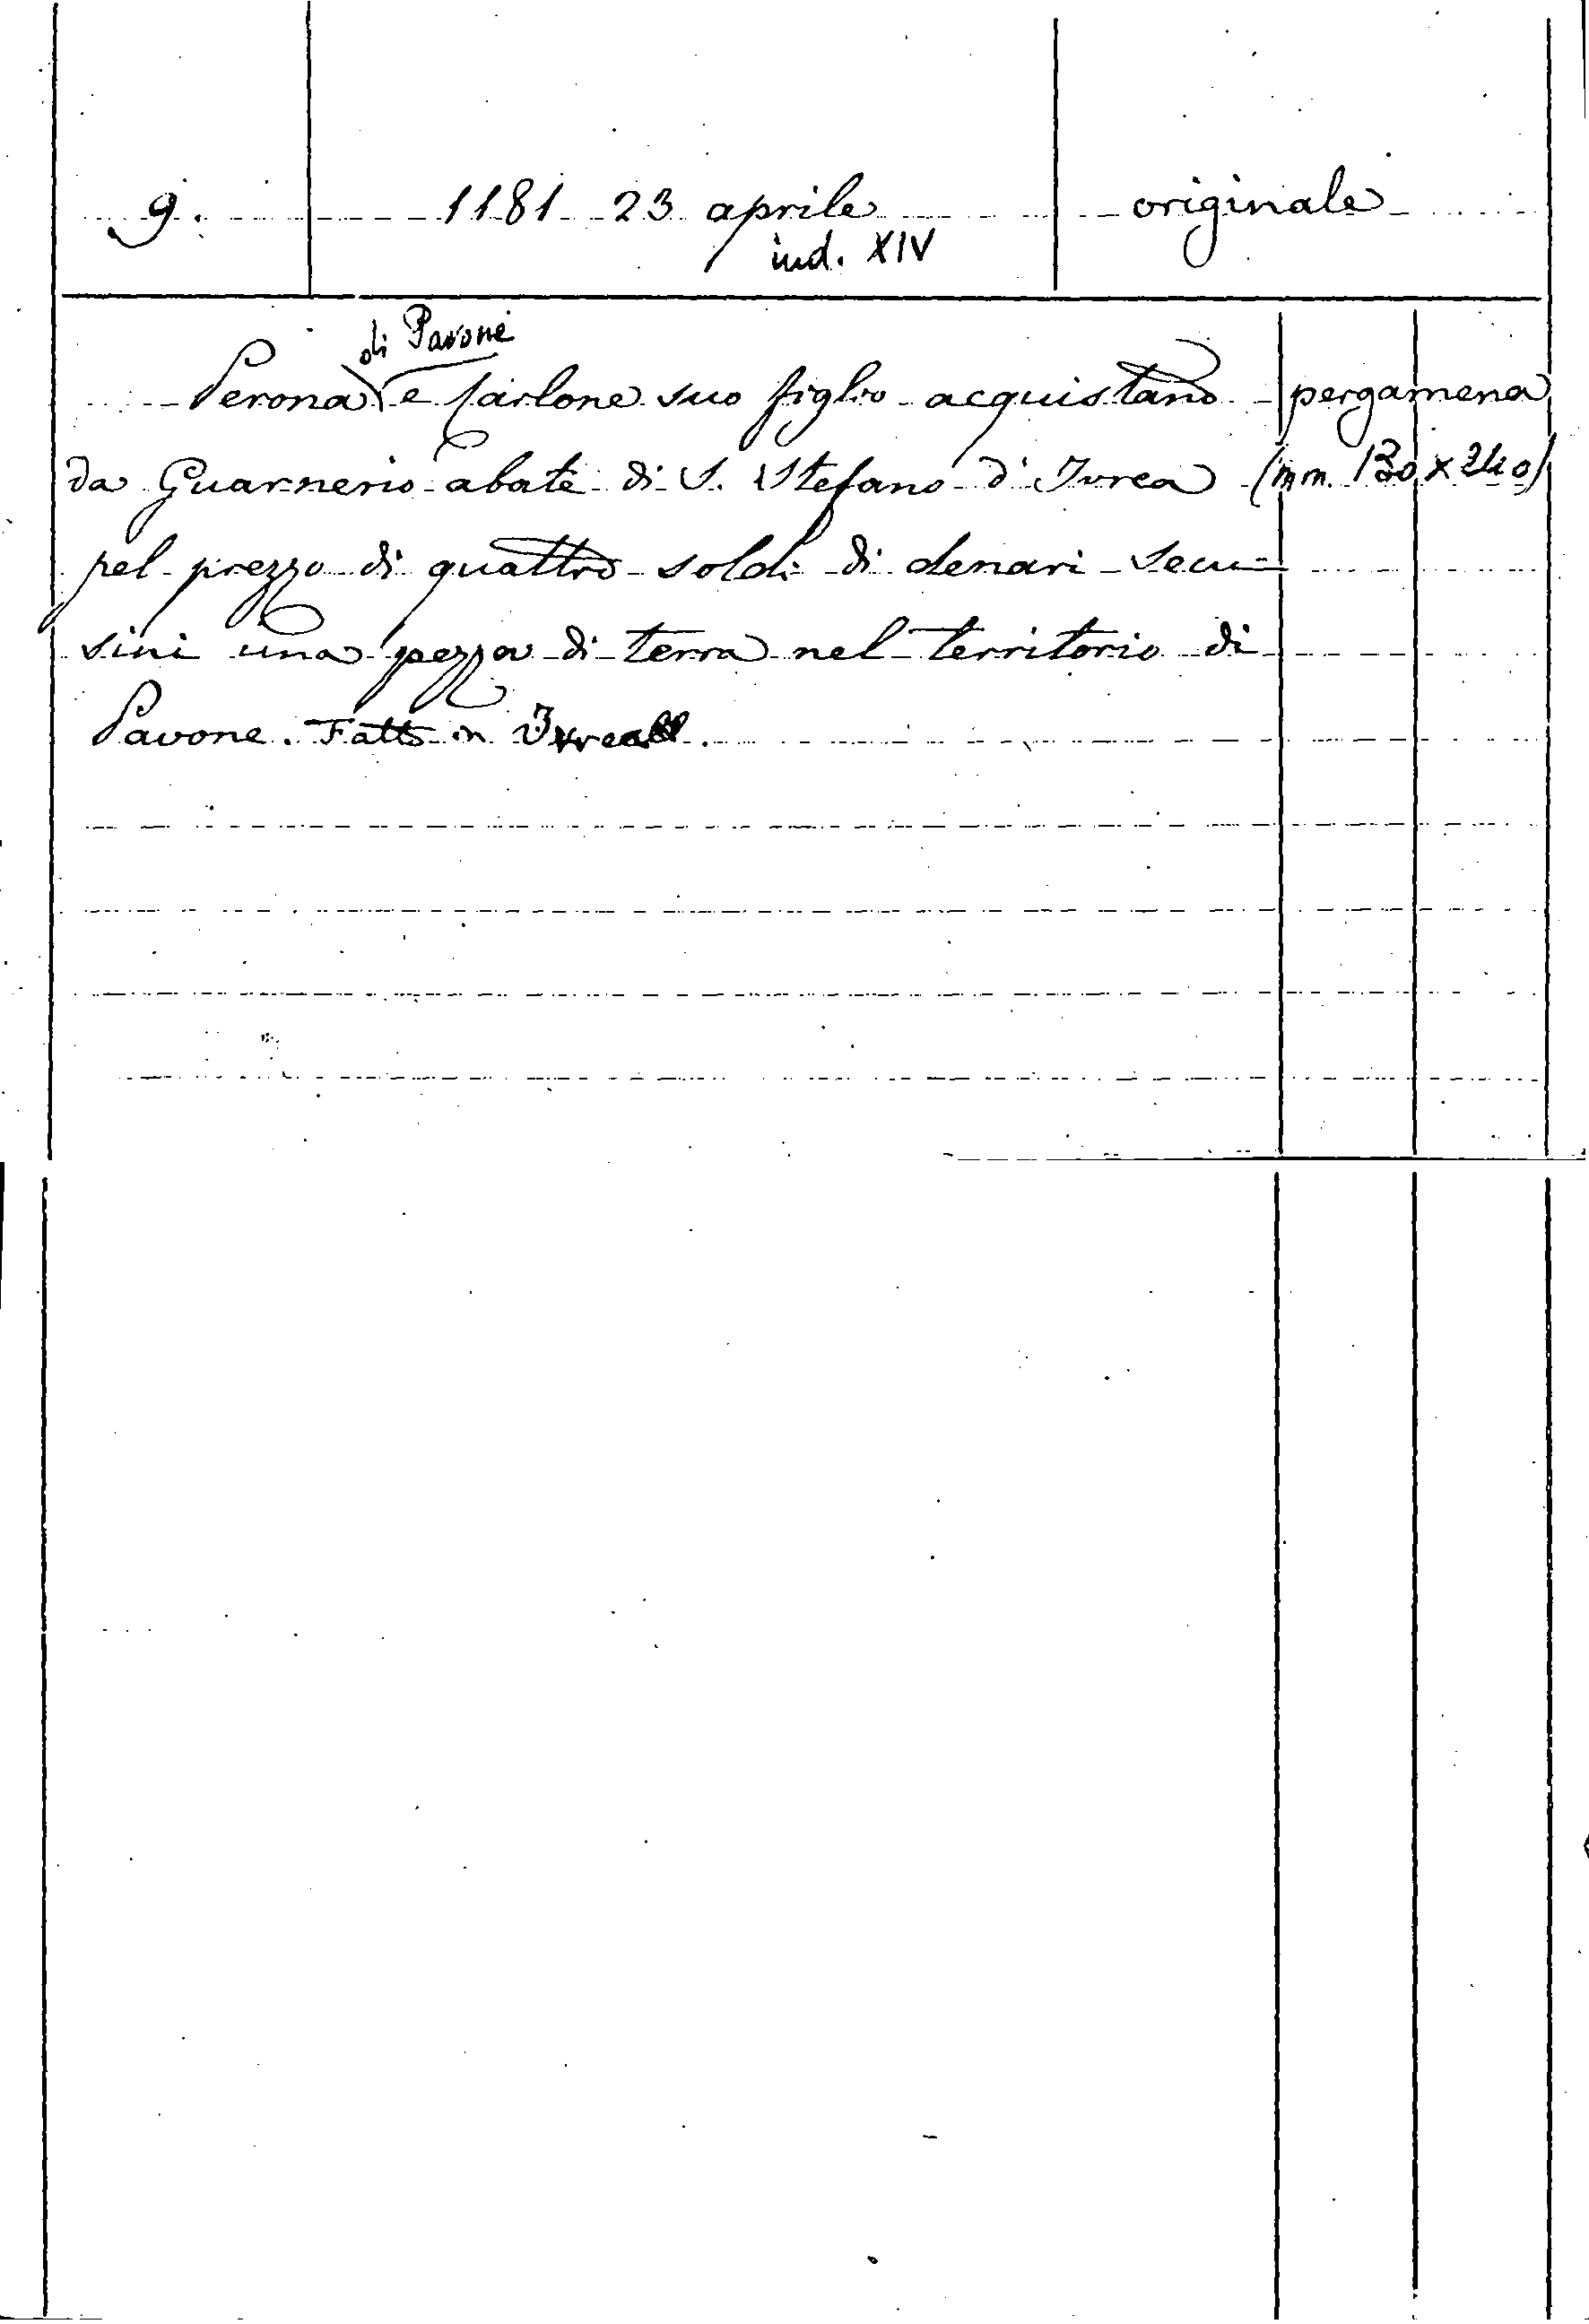 9. 1181 23 aprile originale
ind. XIV
di Pavone
Perona e Carlone suo figlio acquistano pergamena
da Guarnerio abate di S. Stefano d'Ivrea (mm. 130 x 240)
pel prezzo di quattro soldi di denari secu-
sini una pezza di terra nel territorio di
Pavone. Fatto in